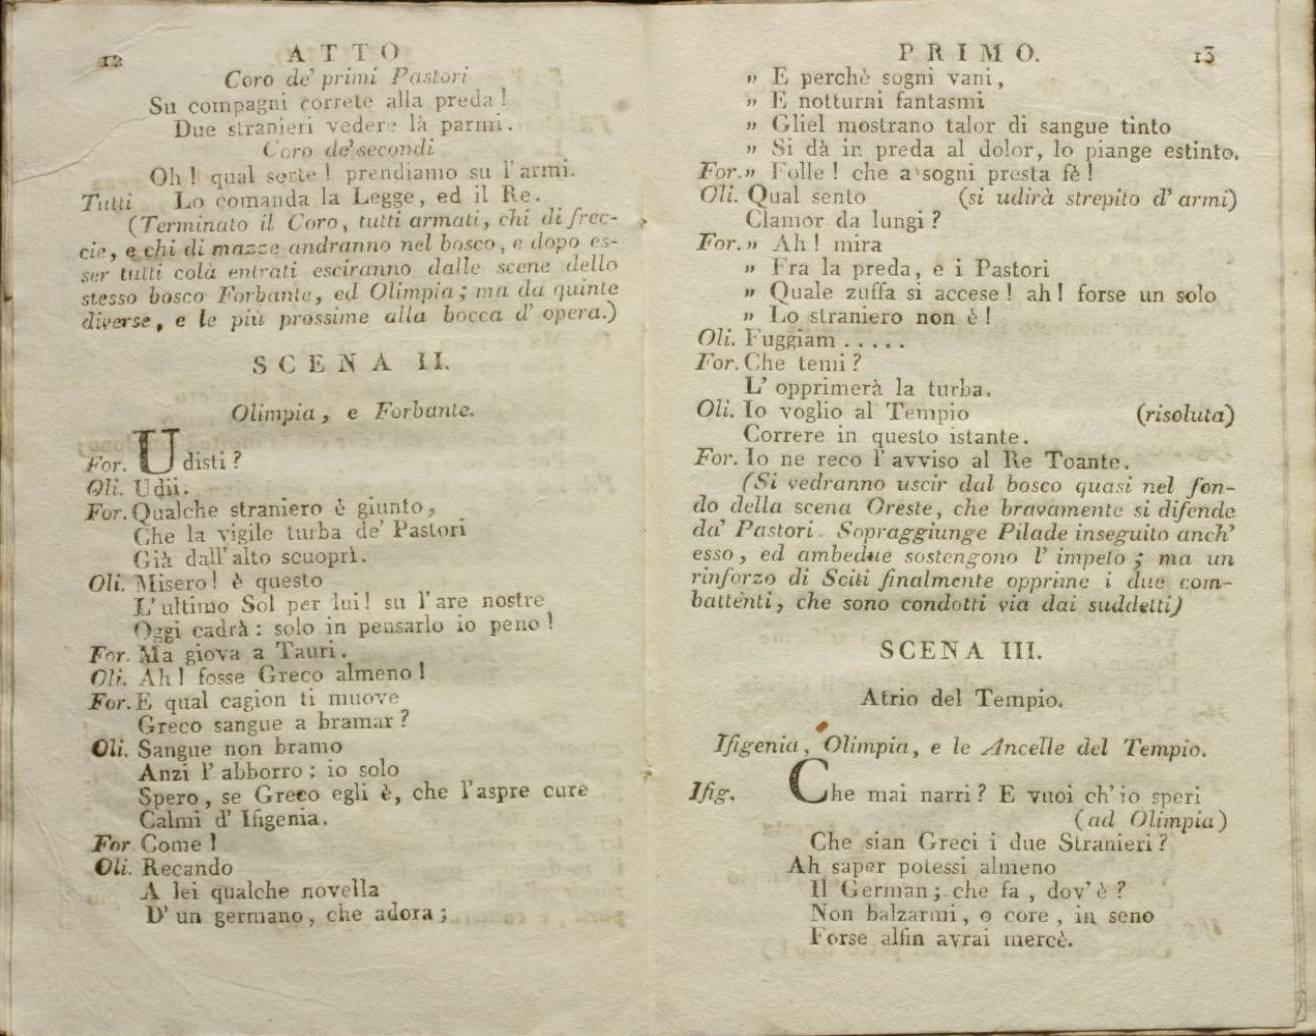 12
ATTO
Coro de' primi Pastori
Su compagni correte alla preda!
Due stranieri vedere là parmi.
Coro de' secondi
Oh! qual sorte! prendiamo su l'armi.
Tutti Lo comanda la Legge, ed il Re.
(Terminato il Coro, tutti armati, chi di frec-
cie, e chi di mazze andranno nel bosco, e dopo es-
ser tutti colà entrati esciranno dalle scene dello
stesso bosco Forbante, ed Olimpia; ma da quinte
diverse, e le più prossime alla bocca d'opera.)
SCENA II.
Olimpia, e Forbante.
For. Udisti?
Oli. Udii.
For. Qualche straniero è giunto,
Che la vigile turba de' Pastori
Già dall'alto scuoprì.
Oli. Misero! è questo
L'ultimo Sol per lui! su l'are nostre
Oggi cadrà: solo in pensarlo io peno!
For. Ma giova a Tauri.
Oli. Ah! fosse Greco almeno!
For. E qual cagion ti muove
Greco sangue a bramar?
Oli. Sangue non bramo
Anzi l'abborro: io solo
Spero, se Greco egli è, che l'aspre cure
Calmi d'Ifigenia.
For Come!
Oli. Recando
A lei qualche novella
D'un germano, che adora;
PRIMO.
13
„ E perchè sogni vani,
„ E notturni fantasmi
„ Gliel mostrano talor di sangue tinto
„ Si dà in preda al dolor, lo piange estinto.
For. „ Folle! che a' sogni presta fè!
Oli. Qual sento (si udirà strepito d'armi)
Clamor da lungi?
For. „ Ah! mira
„ Fra la preda, e i Pastori
„ Quale zuffa si accese! ah! forse un solo
„ Lo straniero non è!
Oli. Fuggiam . . . . .
For. Che temi?
L'opprimerà la turba.
Oli. Io voglio al Tempio (risoluta)
Correre in questo istante.
For. Io ne reco l'avviso al Re Toante.
(Si vedranno uscir dal bosco quasi nel fon-
do della scena Oreste, che bravamente si difende
da' Pastori. Sopraggiunge Pilade inseguito anch'
esso, ed ambedue sostengono l'impeto; ma un
rinforzo di Sciti finalmente opprime i due com-
battenti, che sono condotti via dai suddetti)
SCENA III.
Atrio del Tempio.
Ifigenia, Olimpia, e le Ancelle del Tempio.
Ifig. Che mai narri? E vuoi ch'io speri
(ad Olimpia)
Che sian Greci i due Stranieri?
Ah saper potessi almeno
Il German; che fa, dov'è?
Non balzarmi, o core, in seno
Forse alfin avrai mercè.